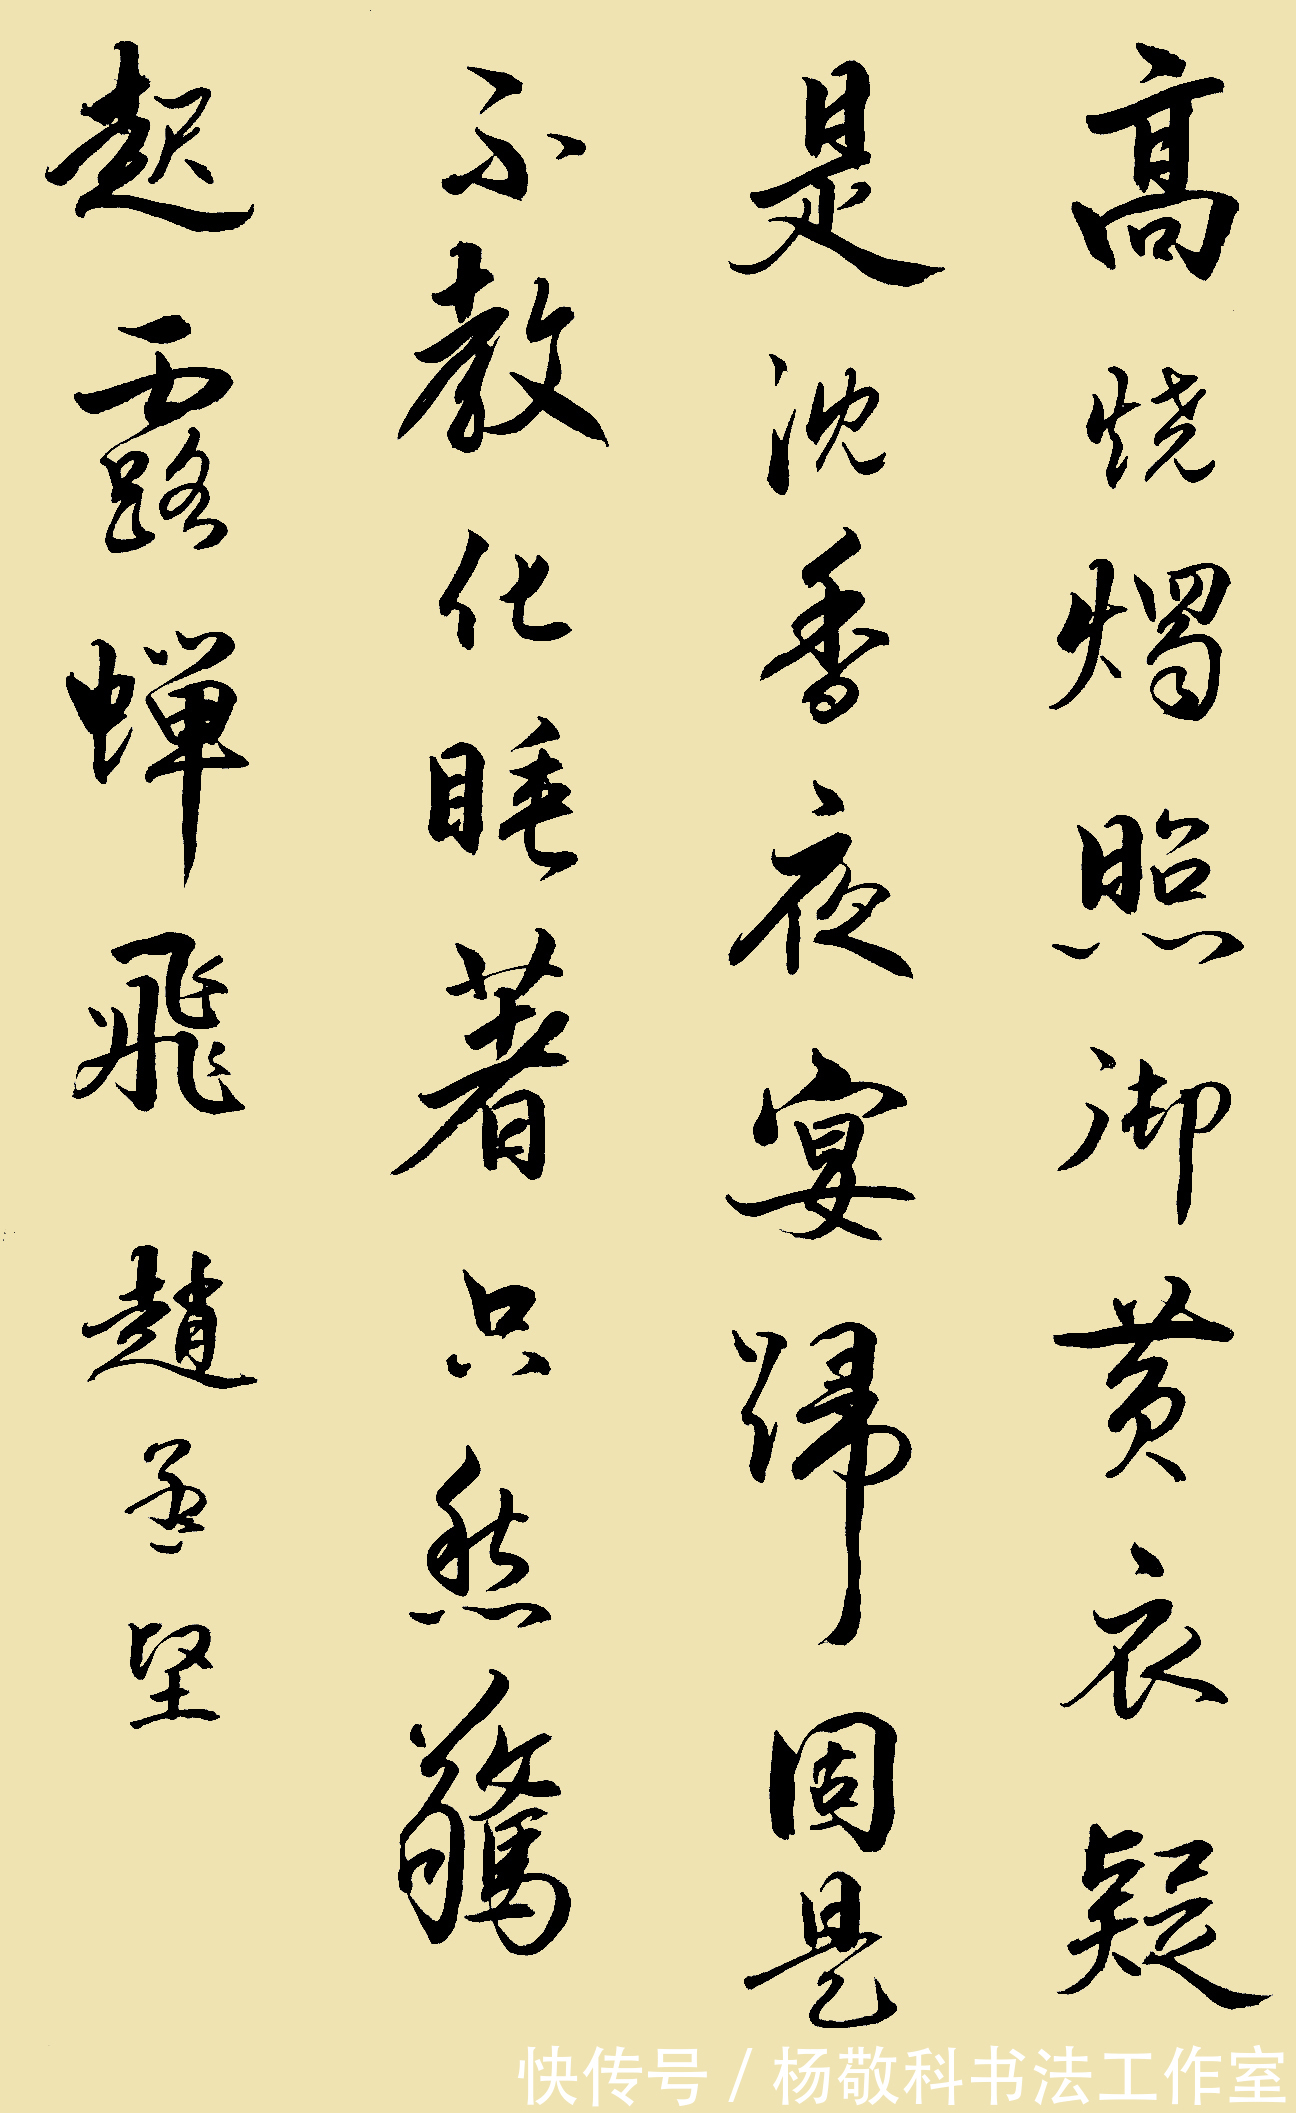 高烧烛照御黄衣疑
是沈香夜宴归固是
不教化睡著只愁惊
起露蝉飞赵孟坚
快传号/杨敬科书法工作室